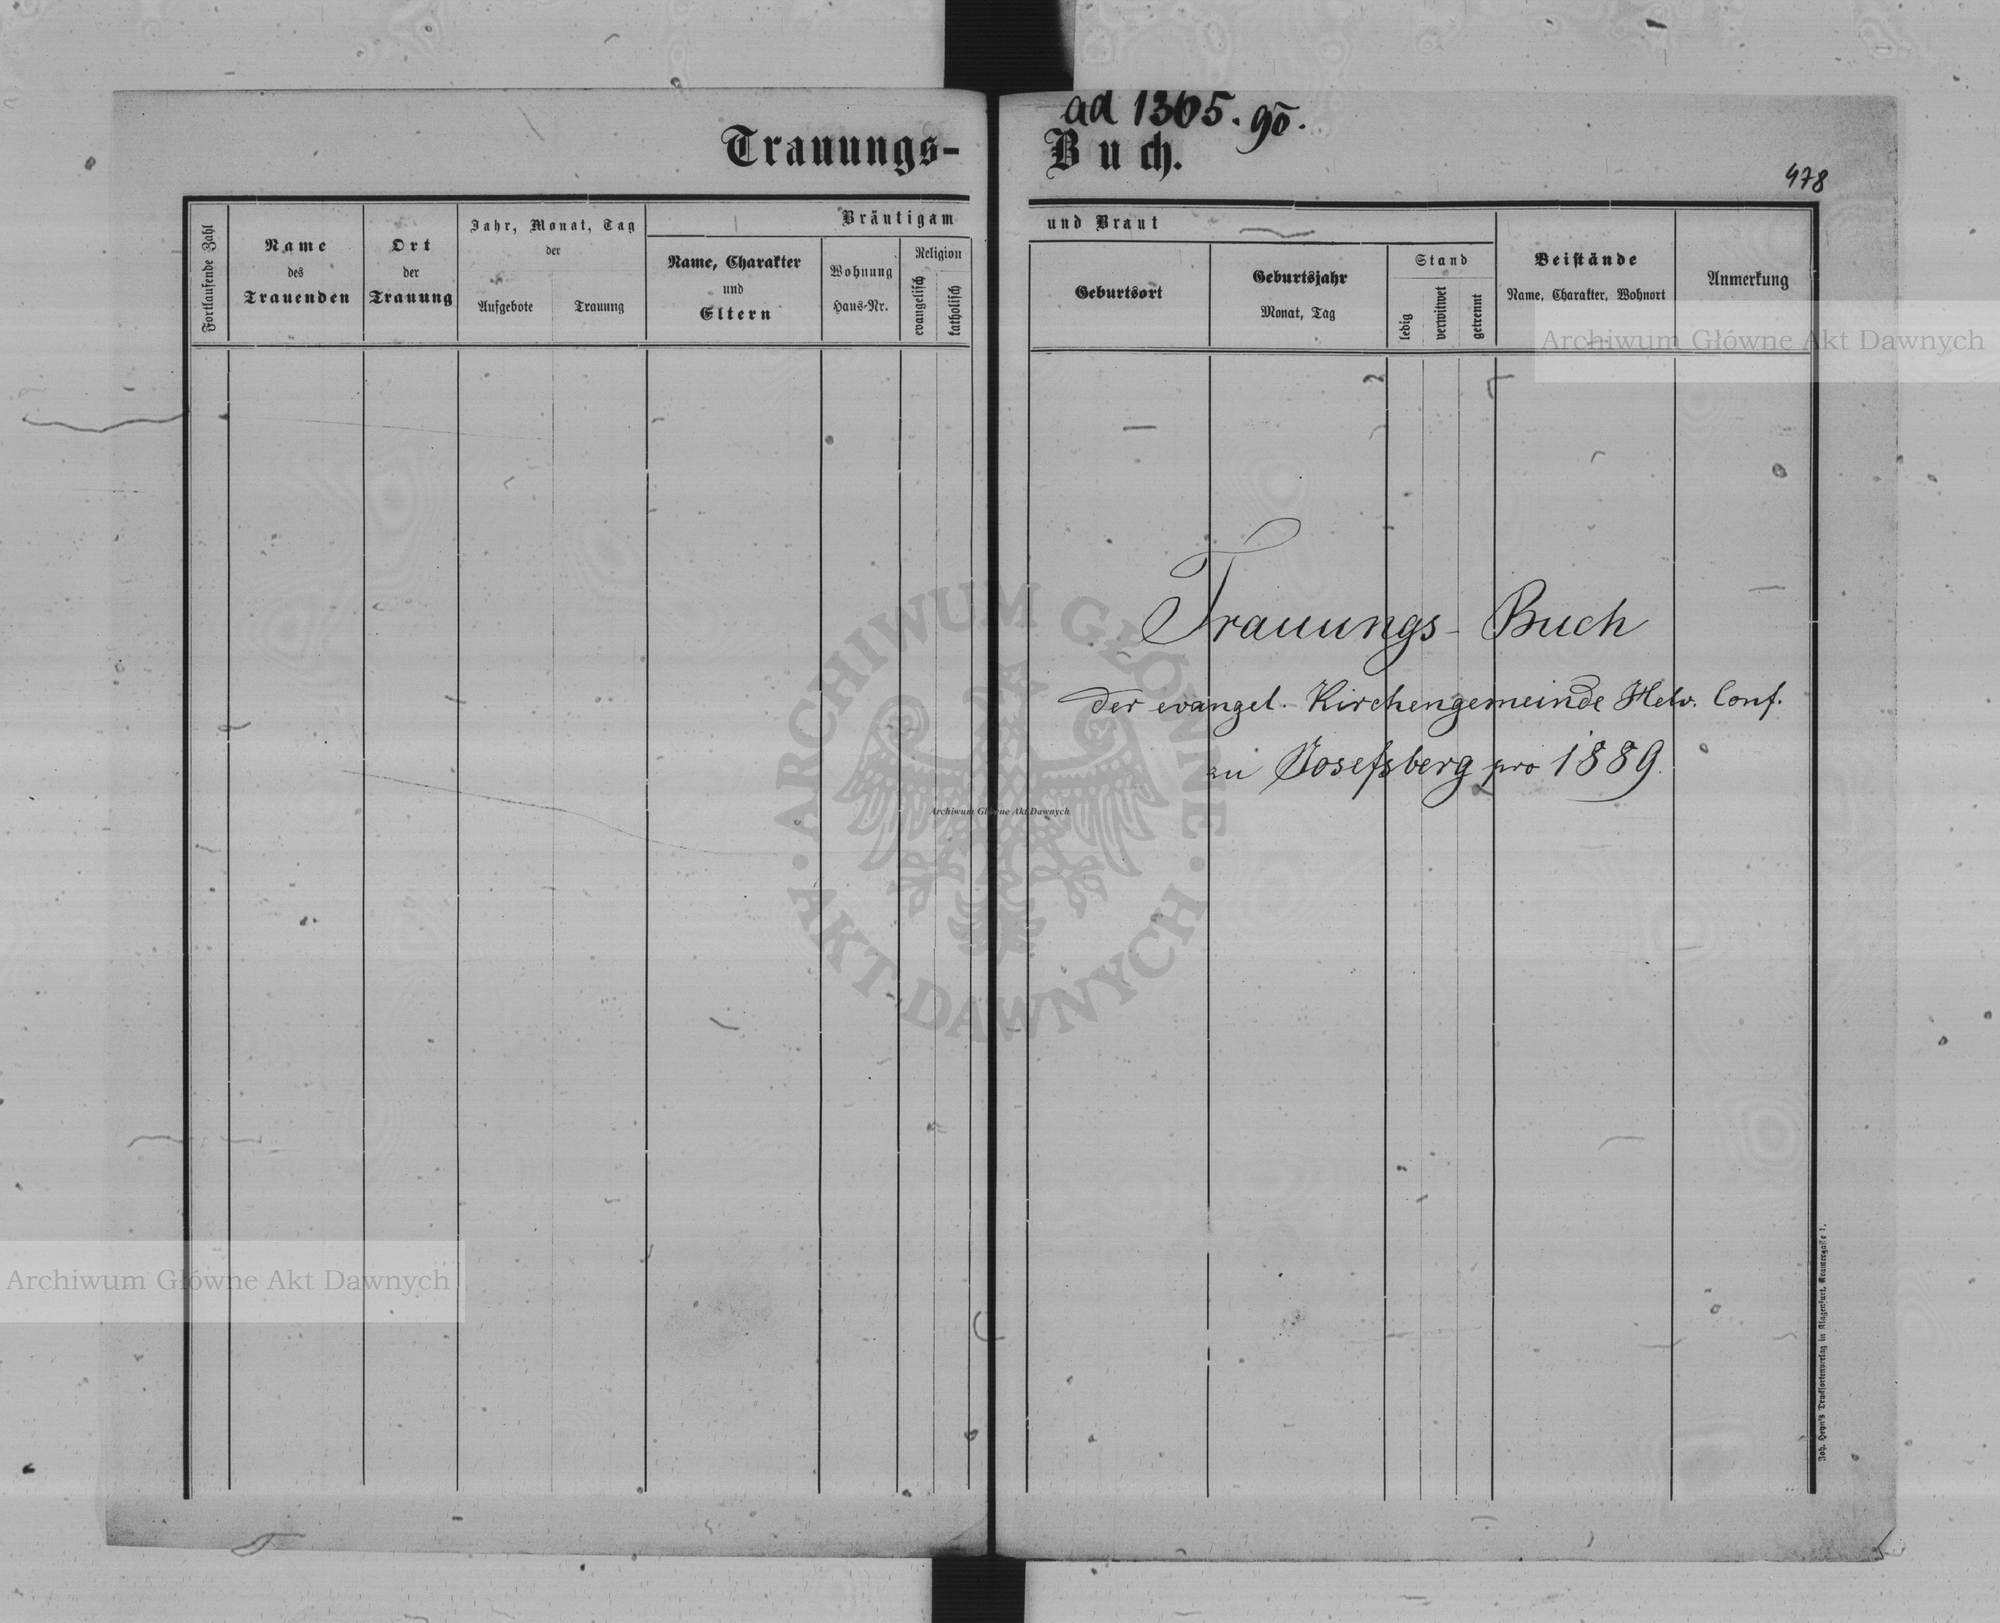 ad 1365. 90.
Trauungs- Buch.
478
Fortlaufende Zahl
Name
des
Trauenden
Ort
der
Trauung
Jahr, Monat, Tag
der
Aufgebote
Trauung
Bräutigam
und Braut
Name, Charakter
und
Eltern
Wohnung
Haus-Nr.
Religion
evangelisch
katholisch
Geburtsort
Geburtsjahr
Monat, Tag
Stand
ledig
verwitwet
getrennt
Beistände
Name, Charakter, Wohnort
Anmerkung
Archiwum Główne Akt Dawnych
Trauungs-Buch
der evangel. Kirchengemeinde Helv. Conf.
zu Josefsberg pro 1889.
ARCHIWUM GŁÓWNE · AKT DAWNYCH ·
Archiwum Główne Akt Dawnych
Archiwum Główne Akt Dawnych
Joh. Heyn's Drucksortenverlag in Klagenfurt, Kramergasse 1.